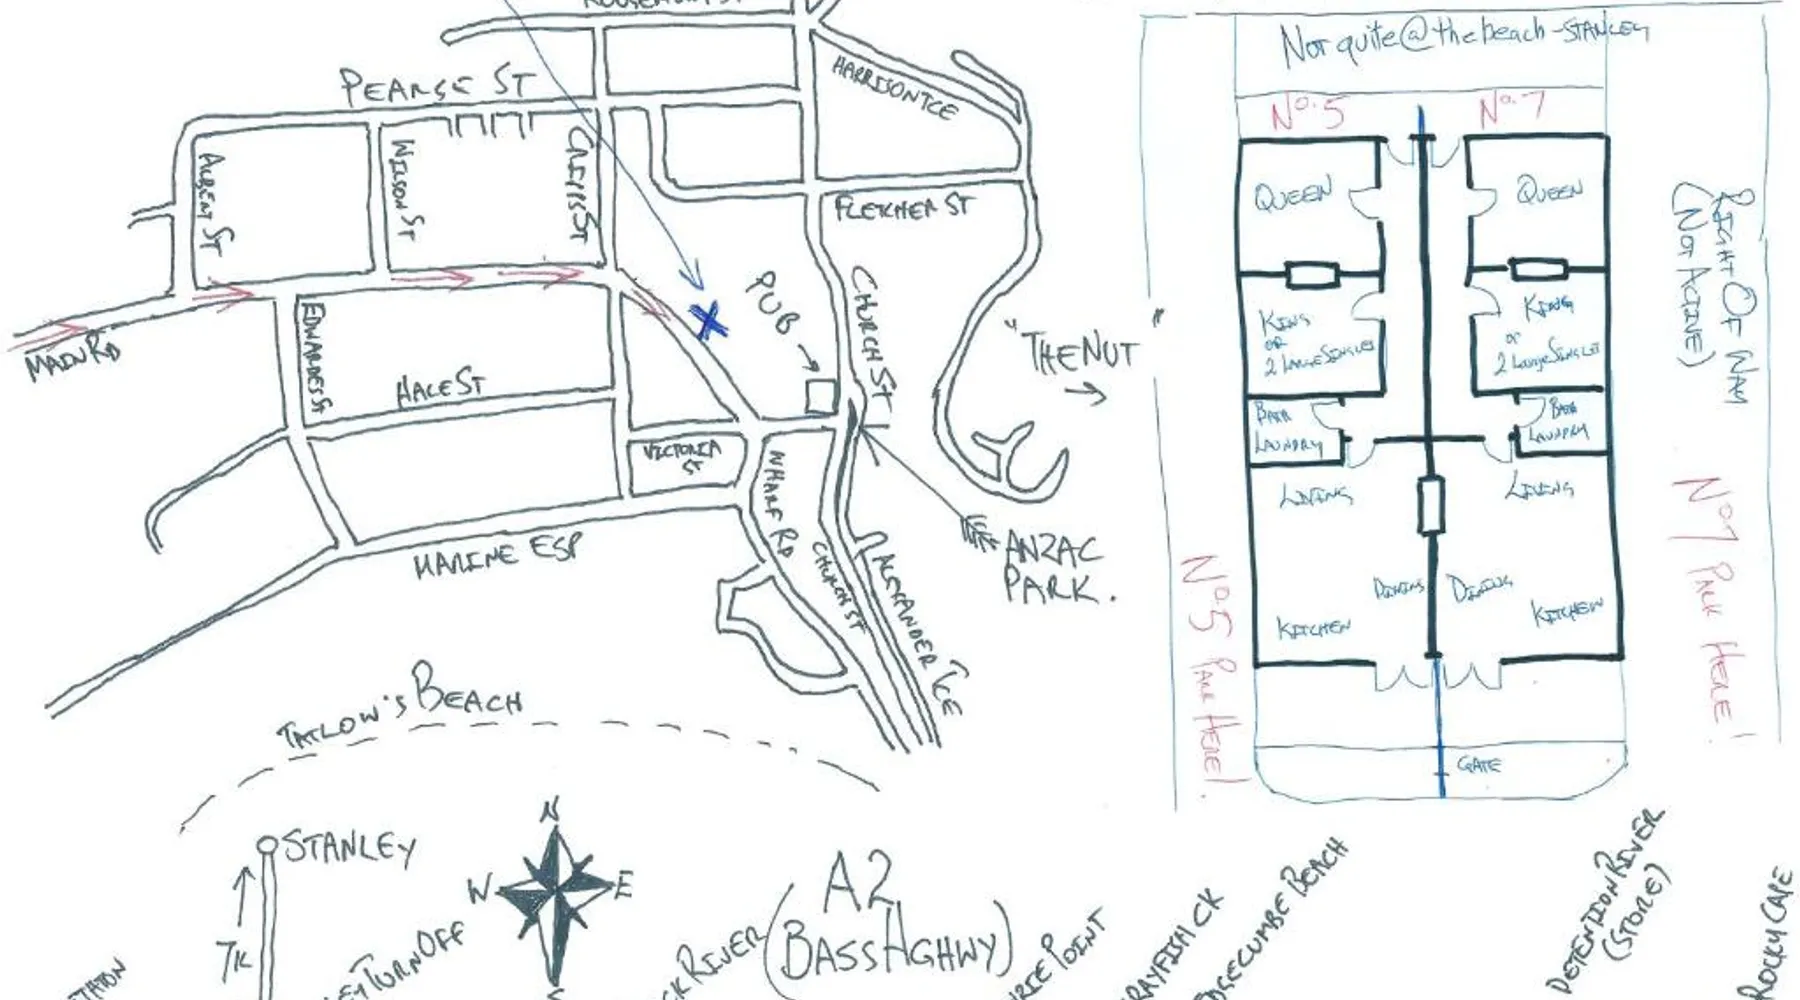 PEARSE ST
HARRISON TCE
ALBERT ST
WILSON ST
CRIPPS ST
FLETCHER ST
MAIN RD
EDWARDES ST
HALE ST
PUB
CHURCH ST
"THE NUT"
VICTORIA
ST
WHARF RD
MARINE ESP
CHURCH ST
ALEXANDER TCE
ANZAC
PARK.
TATLOW'S BEACH
STANLEY
7K
N
W
E
S
A2
(BASS HGHWY)
EDGECUMBE BEACH
DETENTION RIVER
(STORE)
ROCKY CAPE
Not quite@thebeach-STANLEY
No. 5
No. 7
QUEEN
QUEEN
KING
OR
2 LARGE SINGLES
KING
or
2 Large Singles
BATH
LAUNDRY
BATH
LAUNDRY
LIVING
LIVING
DINING
DINING
KITCHEN
KITCHEN
GATE
No. 5 PARK HERE!
No 7 PARK HERE!
RIGHT OF WAY
(NOT ACTIVE)